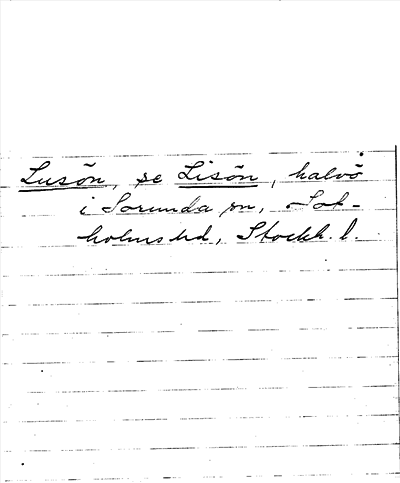 Lusön, se Lisön, halvö
i Sorunda sn, Sot-
holms hd, Stockh. l.